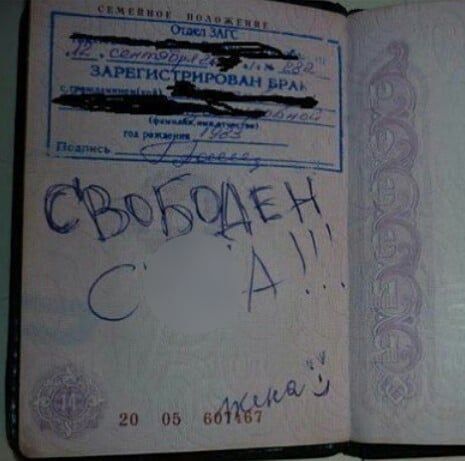 СЕМЕЙНОЕ ПОЛОЖЕНИЕ
Отдел ЗАГС
12 сентября № 282
ЗАРЕГИСТРИРОВАН БРАК
с гражданином(кой)
(фамилия, имя, отчество)
год рождения 1983
Подпись
СВОБОДЕН
С А!!!
жена
14
20 05 601467